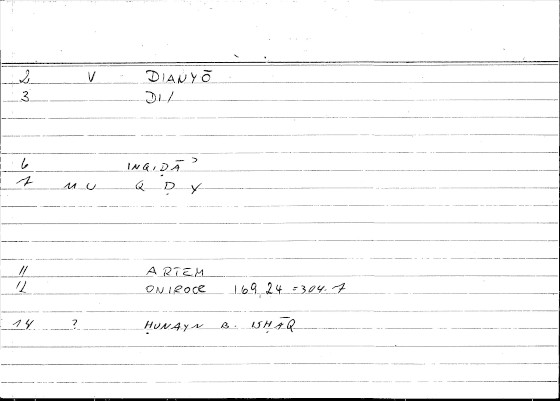 2 V DIANYŌ
3 DI/
6 INQIḌĀʾ
7 M U Q Ḍ Y
11 ARTEM
12 ONIROCR 169,24 = 304.7
14 ? ḤUNAYN B. ISḤĀQ